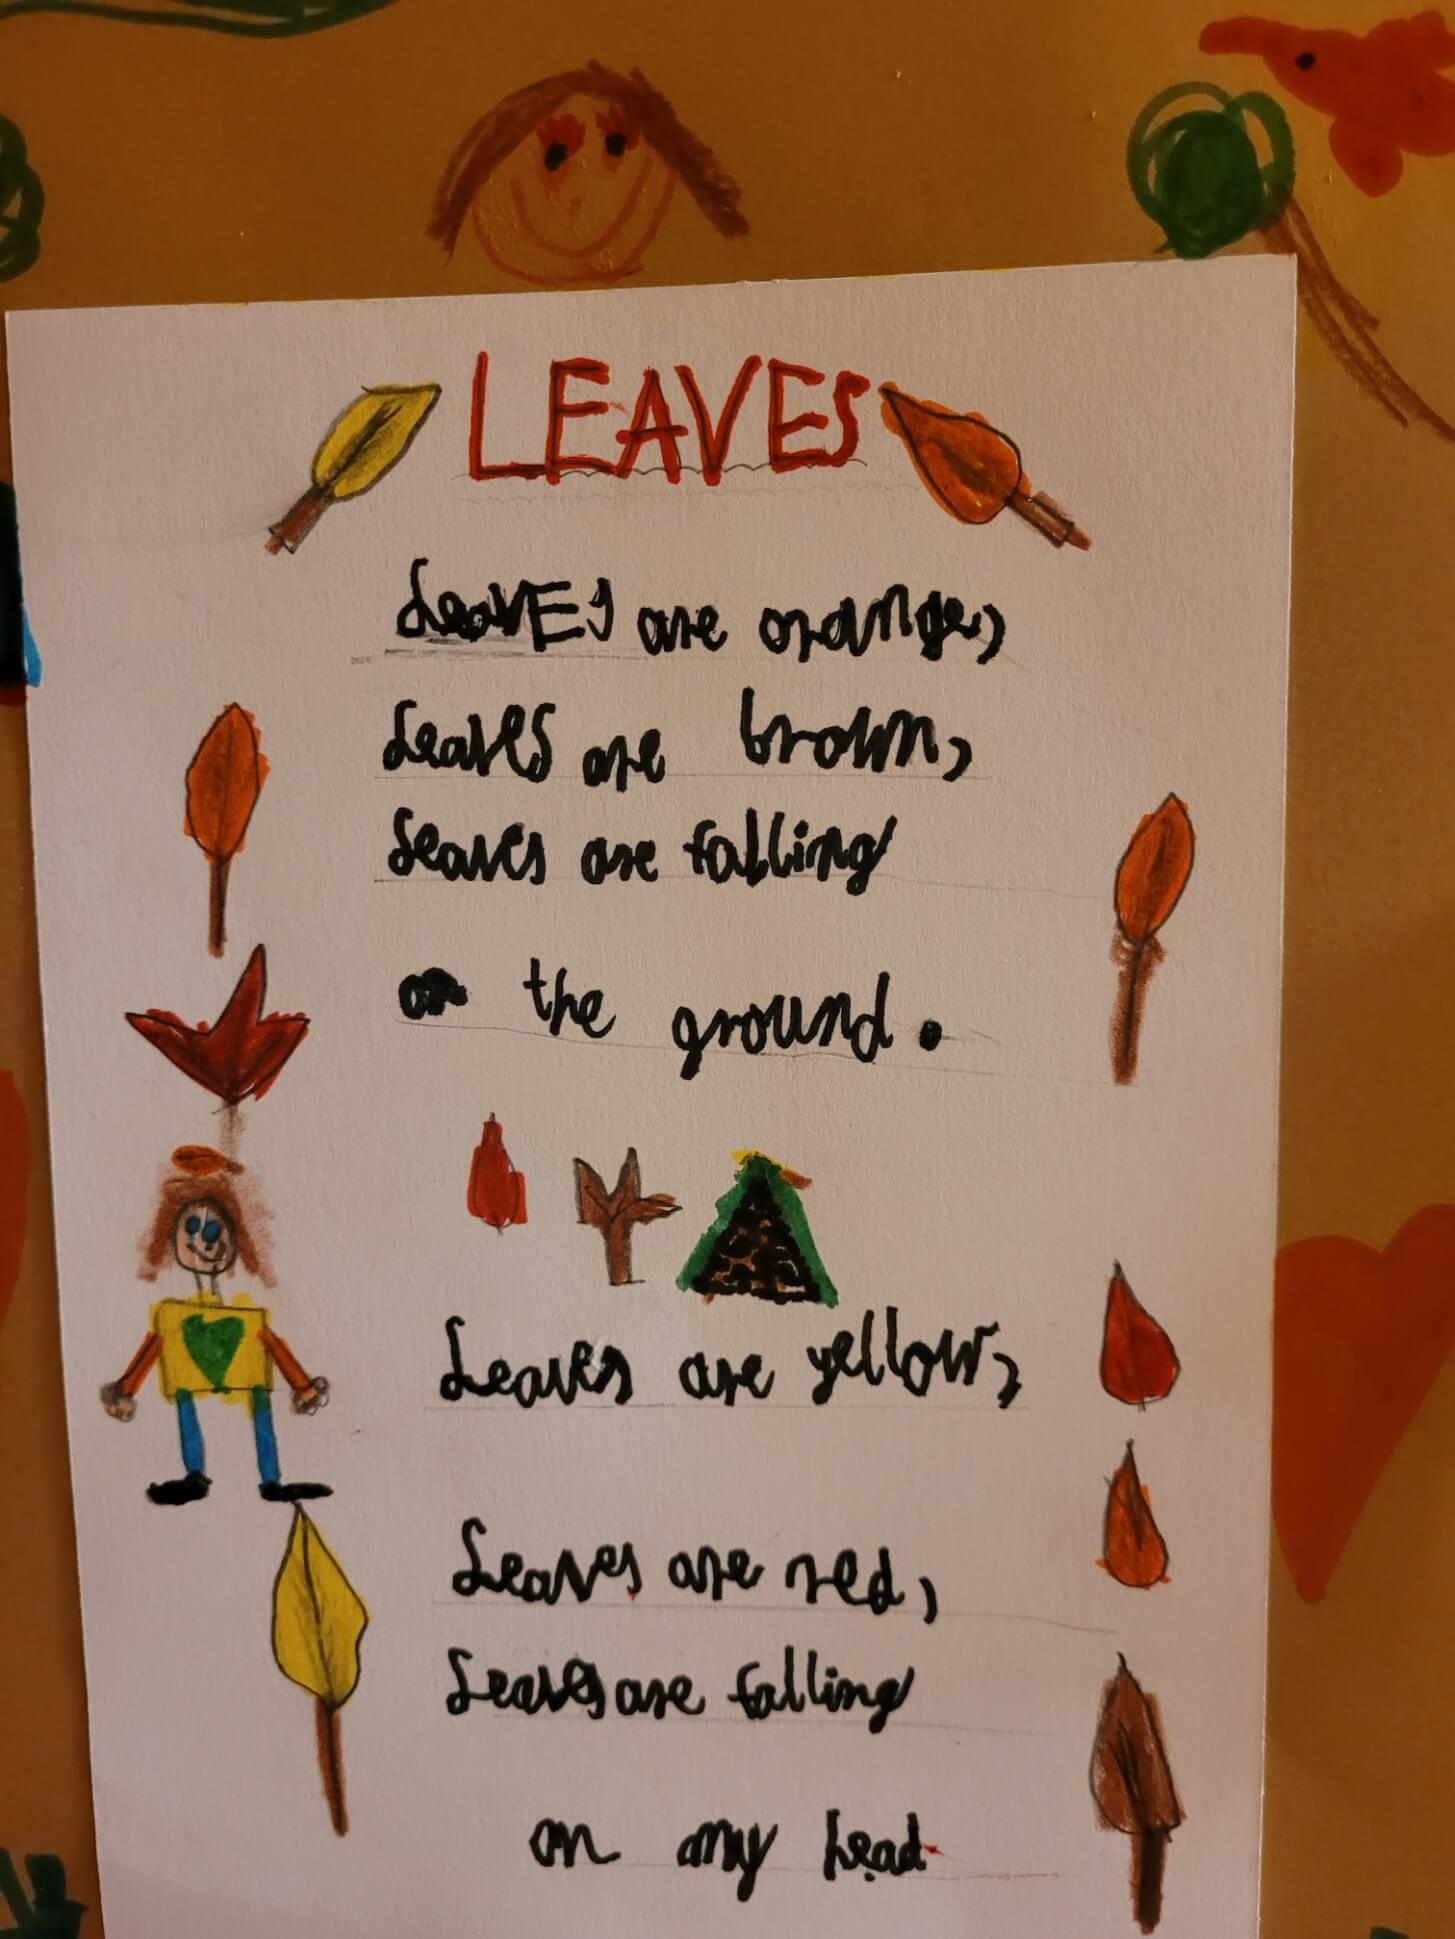 LEAVES
Leaves are orange,
Leaves are brown,
Leaves are falling
on the ground.
Leaves are yellow,
Leaves are red,
Leaves are falling
on my head.